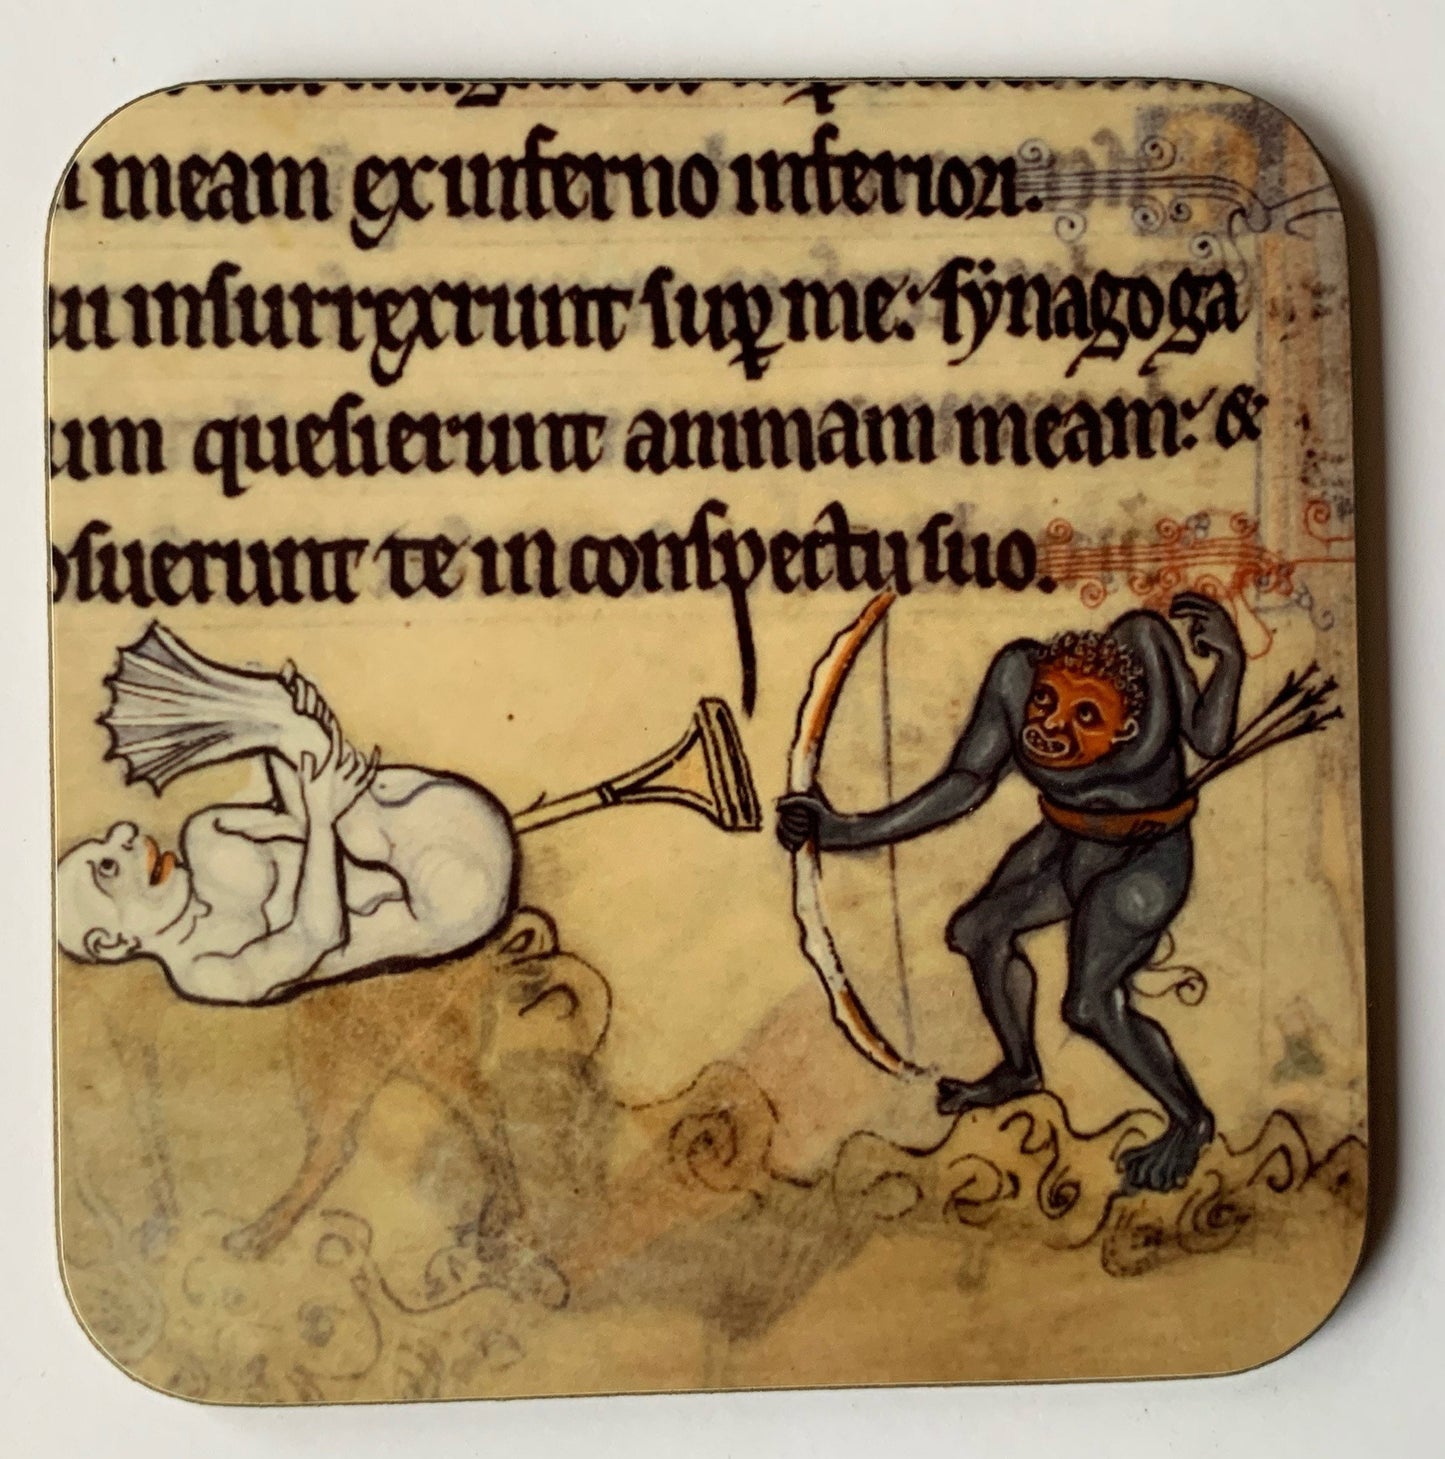 meam ex inferno inferiori.
insurrexerunt suꝑ me: synagoga
um quesierunt animam meam: &
osuerunt te in conspectu suo.